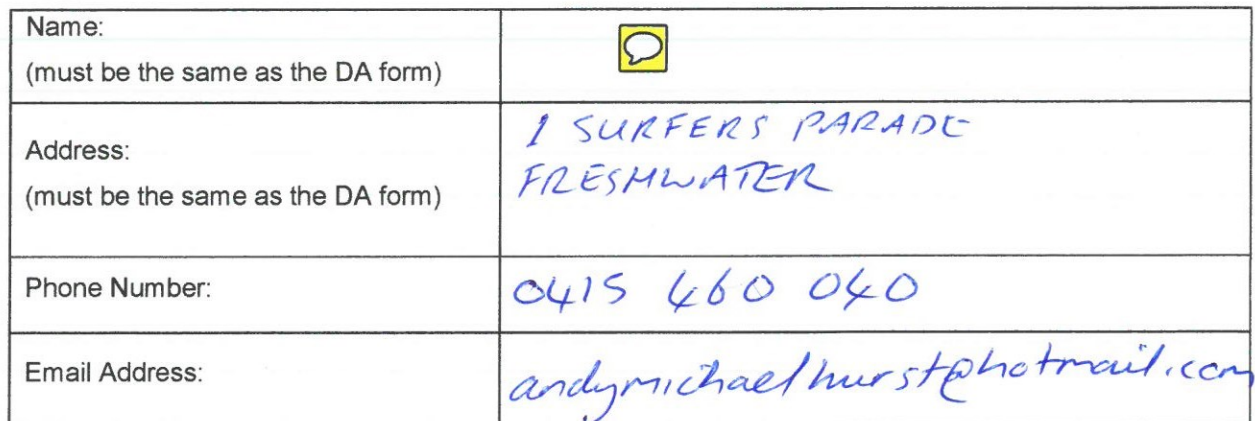 Name:
(must be the same as the DA form)
Address:
(must be the same as the DA form)
1 SURFERS PARADE
FRESHWATER
Phone Number:
0415 460 040
Email Address:
andymichaelhurst@hotmail.com